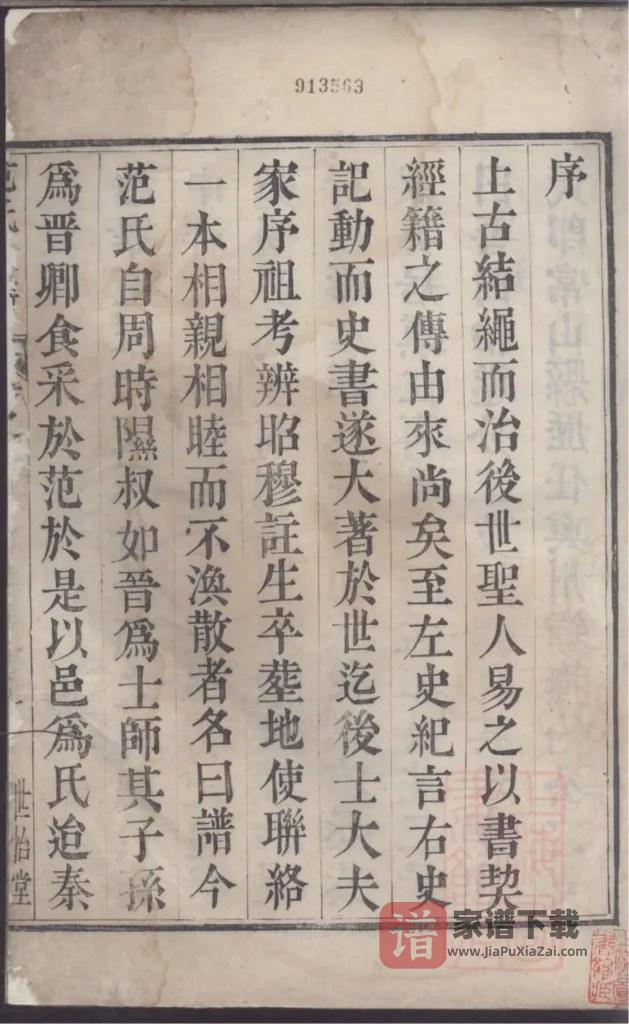 913563
序
上古結繩而治後世聖人易之以書契
經籍之傳由來尚矣至左史紀言右史
記動而史書遂大著於世迄後士大夫
家序祖考辨昭穆註生卒塟地使聯絡
一本相親相睦而不渙散者名曰譜今
范氏自周時隰叔如晉爲士師其子孫
爲晉卿食采於范於是以邑爲氏迨秦
世怡堂
谱 家谱下载
www.JiaPuXiaZai.com